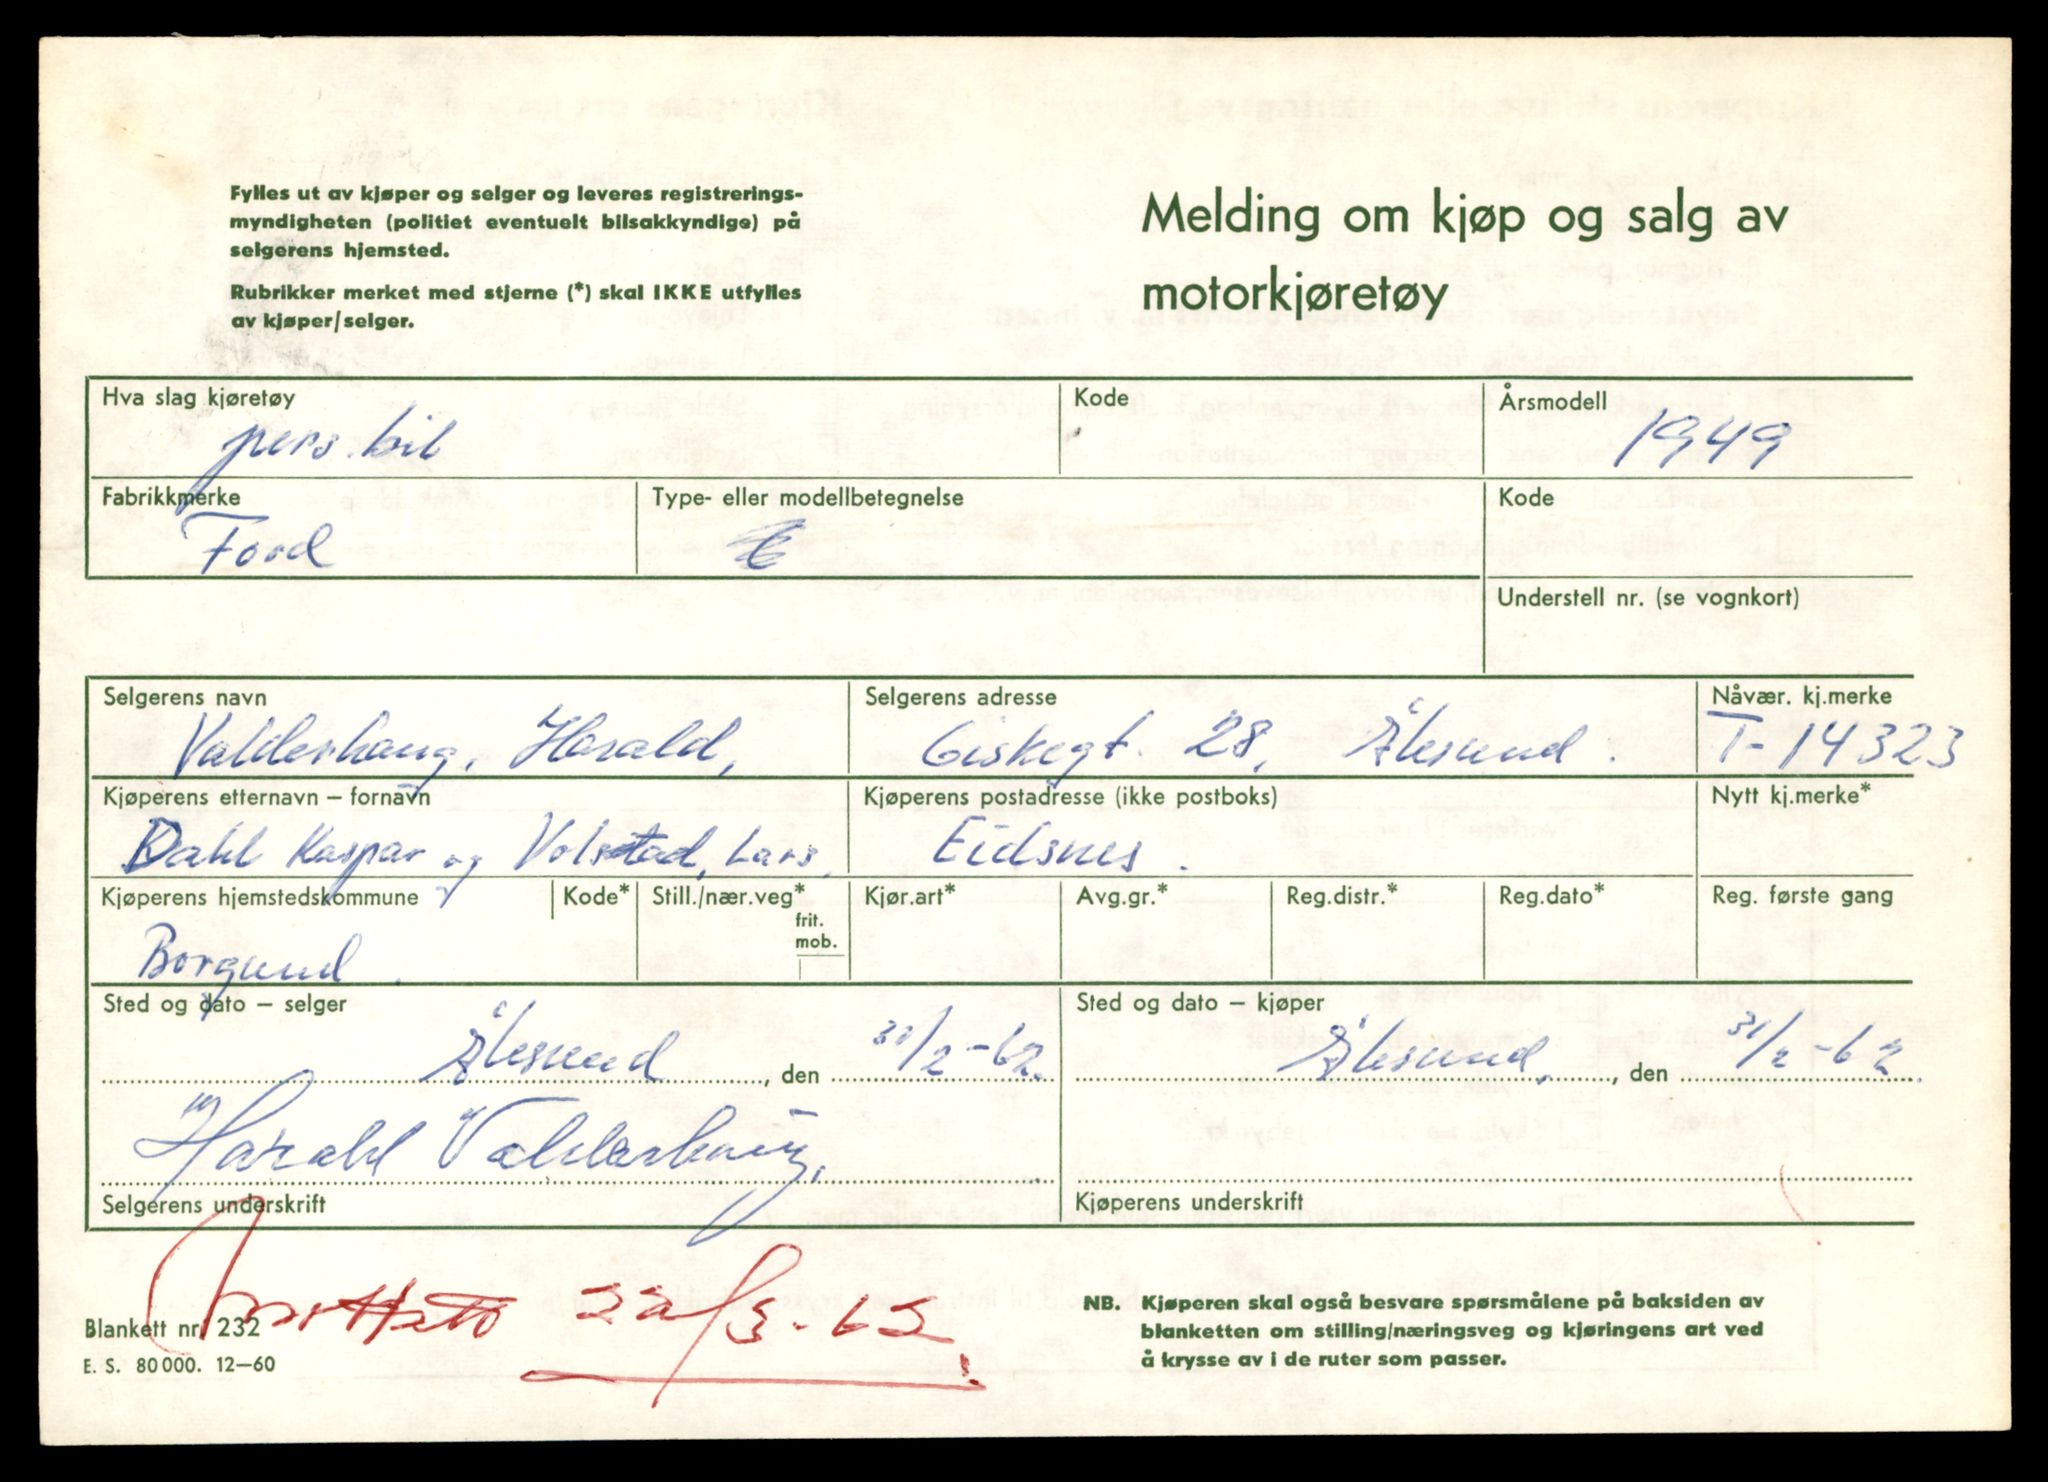 Fylles ut av kjøper og selger og leveres registrerings-
myndigheten (politiet eventuelt bilsakkyndige) på
selgerens hjemsted.
Rubrikker merket med stjerne (*) skal IKKE utfylles
av kjøper/selger.
Melding om kjøp og salg av
motorkjøretøy
Hva slag kjøretøy
pers.bil
Kode
Årsmodell
1949
Fabrikkmerke
Ford
Type- eller modellbetegnelse
Kode
Understell nr. (se vognkort)
Selgerens navn
Valderhaug, Harald,
Selgerens adresse
Giskegt. 28, Ålesund.
Nåvær. kj.merke
T-14323
Kjøperens etternavn – fornavn
Dahl Kaspar og Volstad, Lars.
Kjøperens postadresse (ikke postboks)
Eidsnes.
Nytt kj.merke*
Kjøperens hjemstedskommune
Borgund.
Kode*
Still./nær.veg*
frit.
mob.
Kjør.art*
Avg.gr.*
Reg.distr.*
Reg.dato*
Reg. første gang
Sted og dato – selger
Ålesund, den 31/2-62.
Sted og dato – kjøper
Ålesund, den 31/2-62.
Harald Valderhaug.
Selgerens underskrift
Kjøperens underskrift
22/3-63
Blankett nr. 232
E. S. 80 000. 12–60
NB. Kjøperen skal også besvare spørsmålene på baksiden av
blanketten om stilling/næringsveg og kjøringens art ved
å krysse av i de ruter som passer.